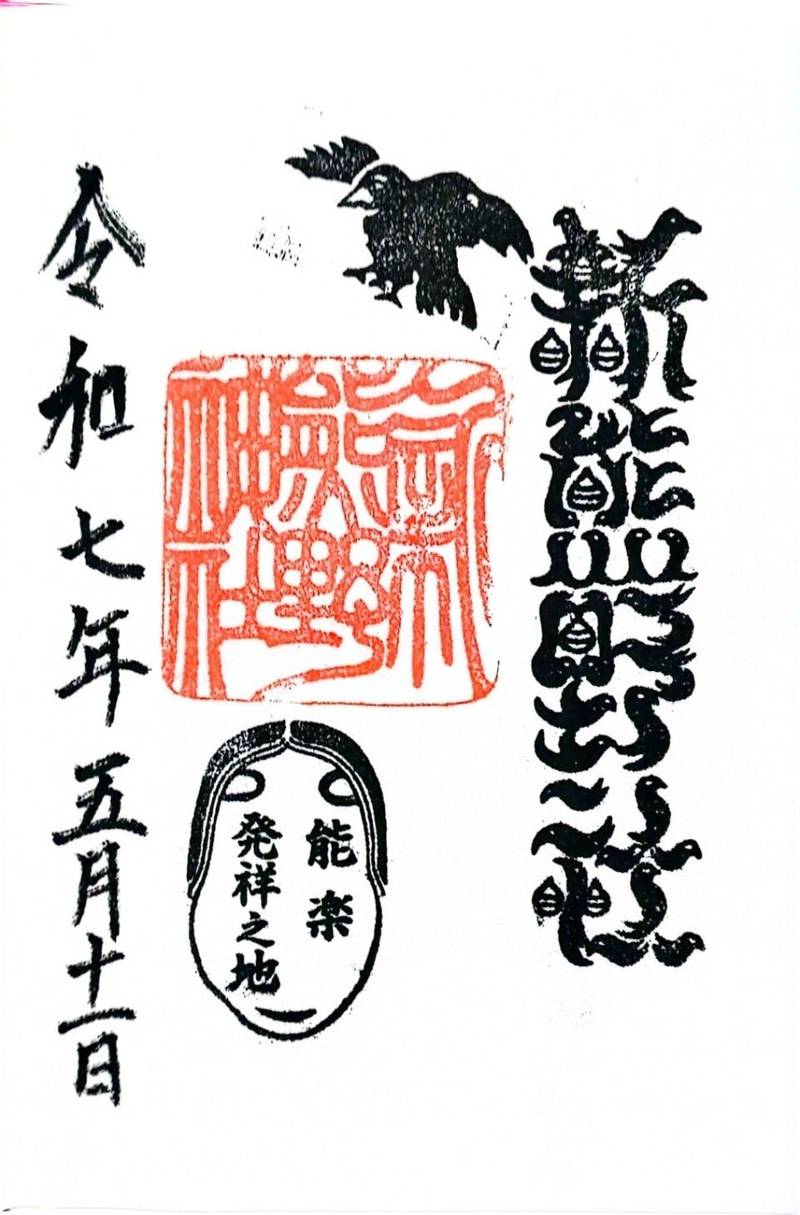 新熊野社
新
熊野
神社
能楽
発祥之地
令和七年五月十一日